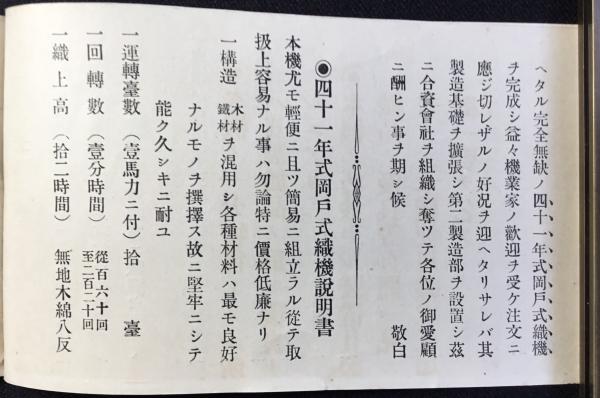 ヘタル完全無缺ノ四十一年式岡戶式織機
ヲ完成シ益々機業家ノ歡迎ヲ受ケ注文ニ
應ジ切レザルノ好况ヲ迎ヘタリサレバ其
製造基礎ヲ擴張シ第二製造部ヲ設置シ茲
ニ合資會社ヲ組織シ奪ツテ各位ノ御愛顧
ニ酬ヒン事ヲ期シ候 敬白
◉四十一年式岡戶式織機說明書
本機尤モ輕便ニ且ツ簡易ニ組立ラル從テ取
扱上容易ナル事ハ勿論特ニ價格低廉ナリ
一構造 木材鐵材ヲ混用シ各種材料ハ最モ良好
ナルモノヲ撰擇ス故ニ堅牢ニシテ
能ク久シキニ耐ユ
一運轉臺數(壹馬力ニ付)拾臺
一回轉數(壹分時間) 從百六十回至二百二十回
一織上高(拾二時間) 無地木綿八反